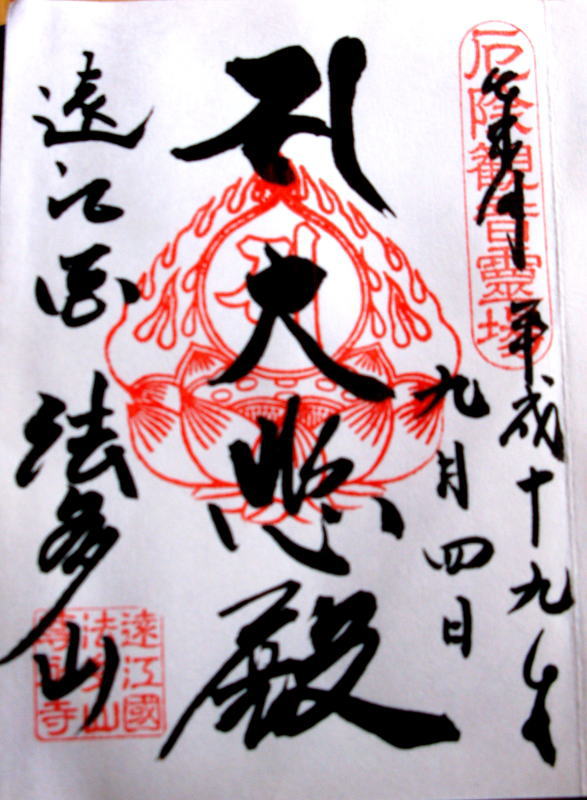 厄除觀音靈場
奉拝
平成十九年
九月四日
大悲殿
遠江国 法多山
遠江國
法多山
尊永寺